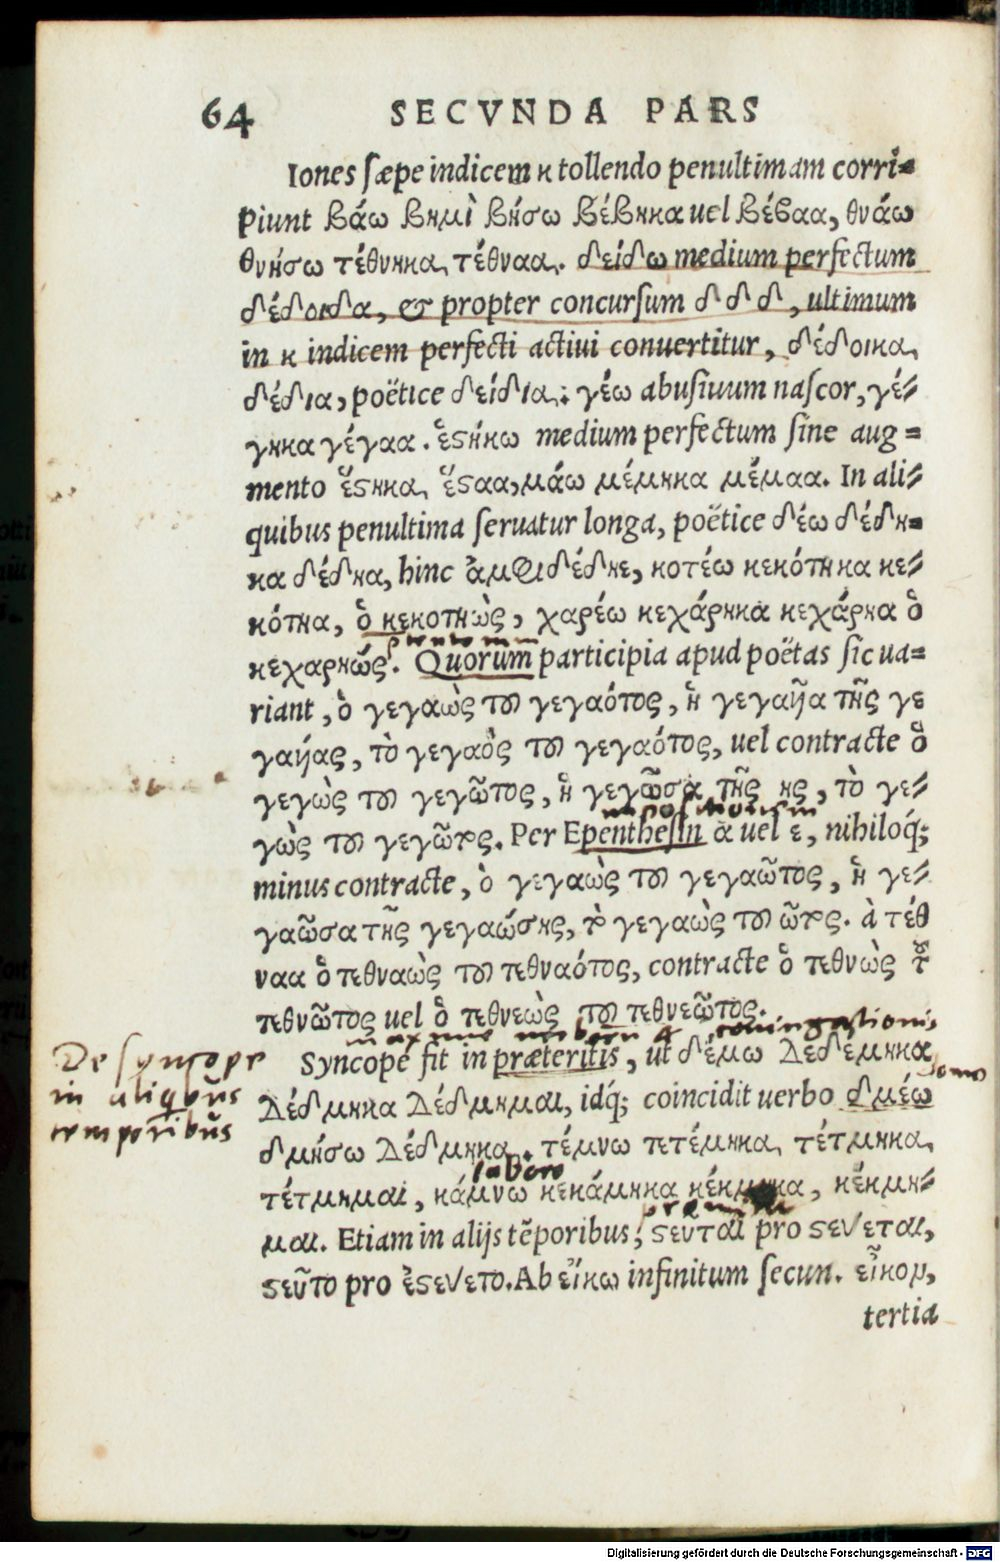 64 SECVNDA PARS
Iones sæpe indicem κ tollendo penultimam corri-
piunt βάω βημὶ βήσω βέβηκα uel βέβαα, θνάω
θνήσω τέθνηκα, τέθναα. δείδω medium perfectum
δέδοιδα, & propter concursum δ δ δ, ultimum
in κ indicem perfecti actiui conuertitur, δέδοικα,
δέδια, poëtice δείδια: γέω abusiuum nascor, γέ-
γηκα γέγαα. ἑστήκω medium perfectum sine aug=
mento ἕστηκα, ἕσταα, μάω μέμηκα μέμαα. In ali-
quibus penultima seruatur longa, poëtice δέω δέδη-
κα δέδηα, hinc ἀμφιδέδηε, κοτέω κεκότηκα κε-
κότηα, ὁ κεκοτηὼς, χαρέω κεχάρηκα κεχάρηα ὁ
κεχαρηώς. Quorum participia apud poëtas sic ua=
riant, ὁ γεγαὼς τοῦ γεγαότος, ἡ γεγαῦα τῆς γε
γαύας, τὸ γεγαὸς τοῦ γεγαότος, uel contracte ὁ
γεγὼς τοῦ γεγῶτος, ἡ γεγῶσα τῆς ης, τὸ γε-
γὼς τοῦ γεγῶτος. Per Epenthesin α uel ε, nihiloq́;
minus contracte, ὁ γεγαὼς τοῦ γεγαῶτος, ἡ γε-
γαῶσα τῆς γεγαώσης, τὸ γεγαὼς τοῦ ῶτος. ἀ τέθ
ναα ὁ τεθναὼς τοῦ τεθναότος, contracte ὁ τεθνὼς τοῦ
τεθνῶτος uel ὁ τεθνεὼς τοῦ τεθνεῶτος.
maxime uerborum 4 coniugationis
De syncope
in aliqbus
temporibus
Syncope fit in præteritis, ut δέμω δεδέμηκα
domo
δέδμηκα δέδμημαι, idq́; coincidit uerbo δμέω
δμήσω δέδμηκα. τέμνω τετέμηκα, τέτμηκα,
laboro
τέτμημαι, κάμνω κεκάμηκα κέκμηκα, κέκμη-
μαι. Etiam in alijs tẽporibus, στεῦται pro στεύεται,
στεῦτο pro ἐστεύετο. Ab εἴκω infinitum secun. εἶκον,
tertia
Digitalisierung gefördert durch die Deutsche Forschungsgemeinschaft - DFG